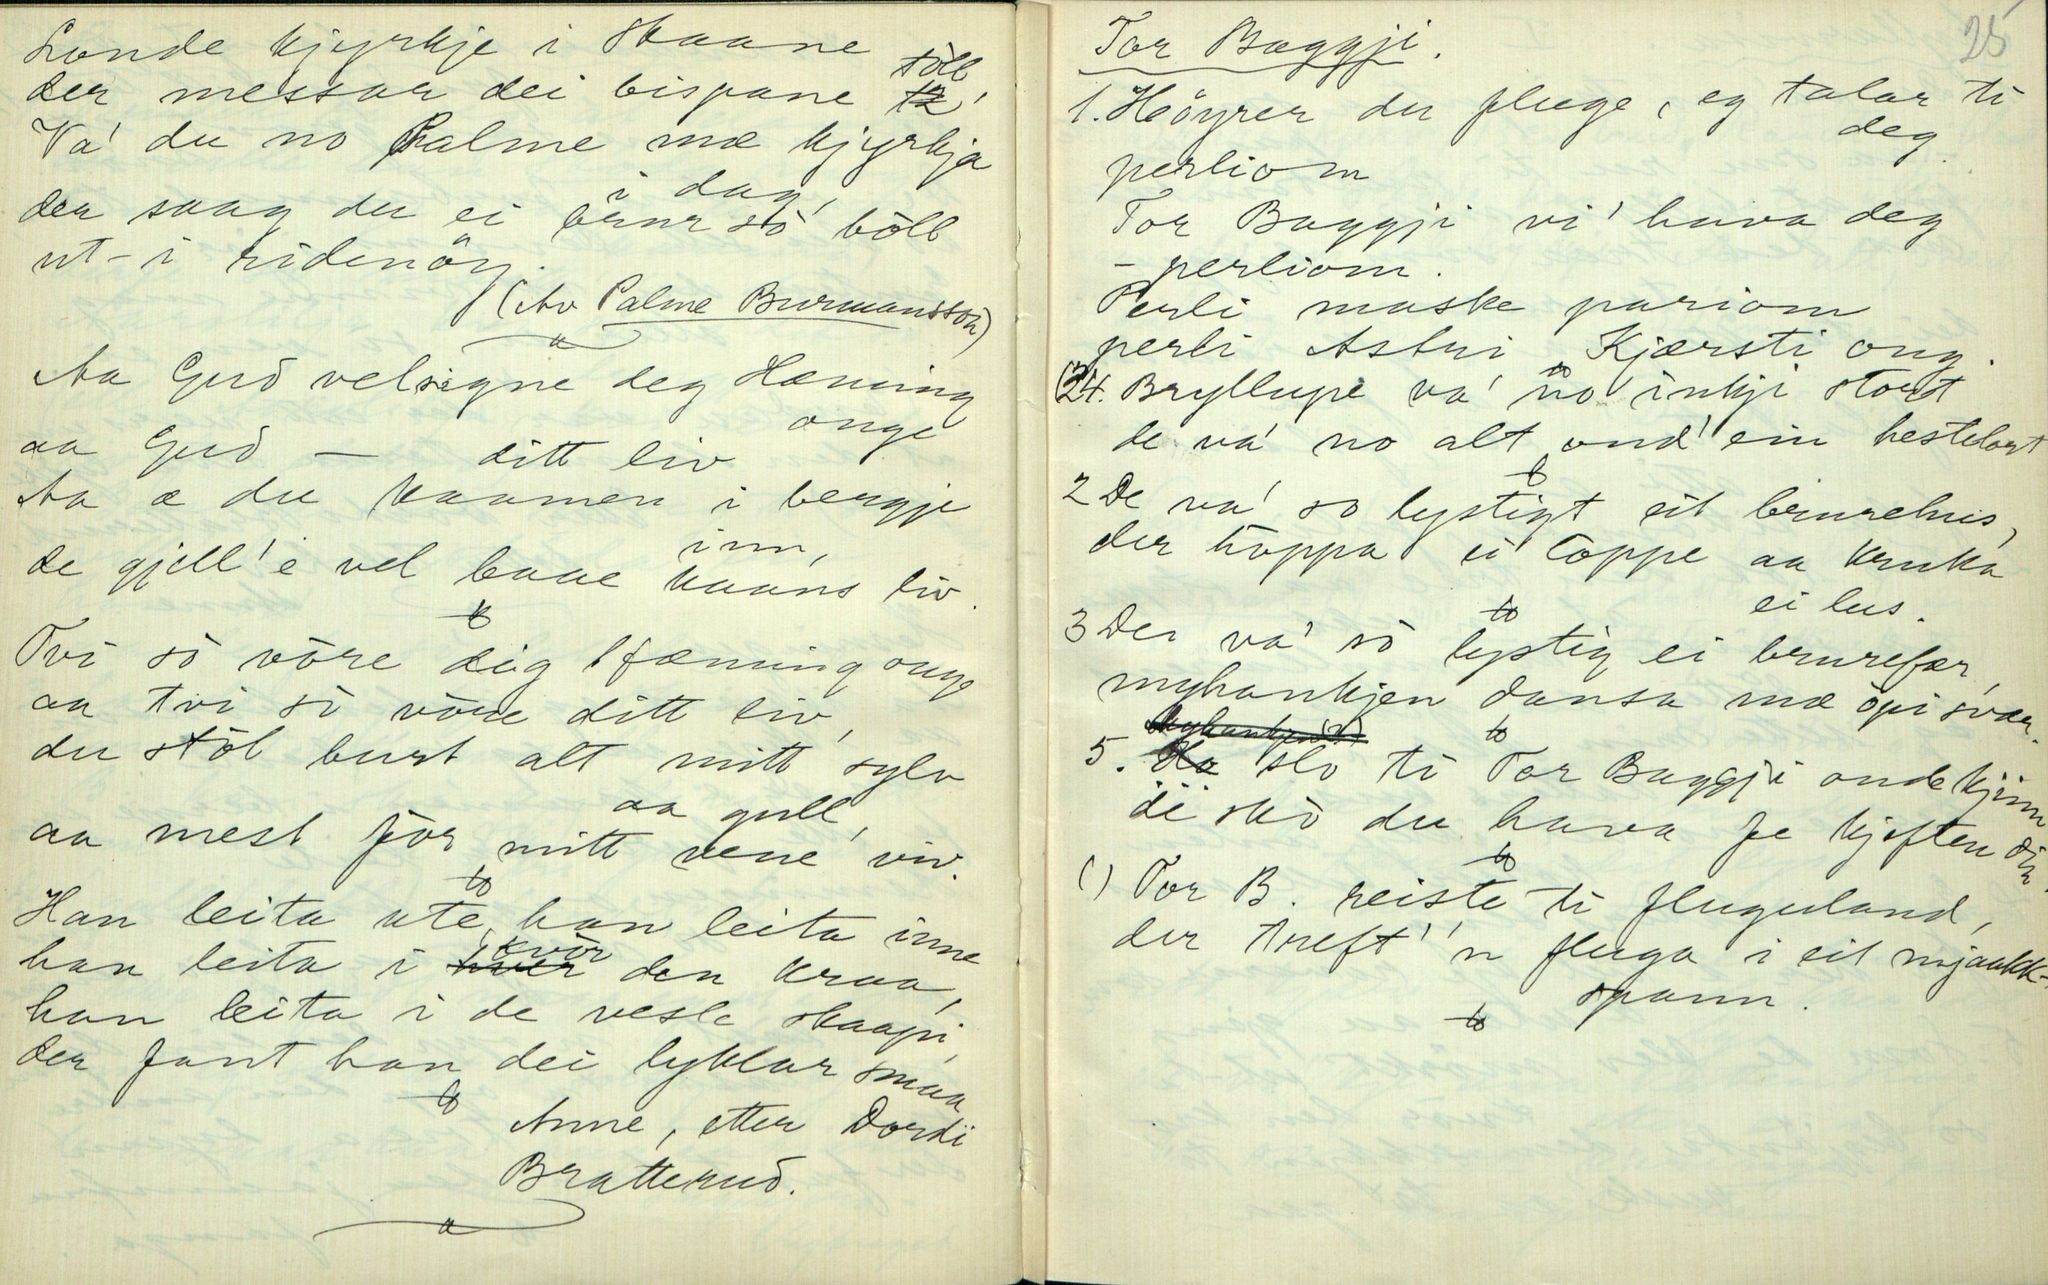 Londe kjyrkje i Skaane
der messar dei bispane töll
Va' du no Palme mæ kjyrkja
i dag,
der saag du ei brur sò böll
ut-i ridenöy.
(Av Palme Burmansson)
Aa Gud velsigne deg Hæming
onge
aa Gud — ditt liv
Aa æ du kaamen i bergje
inn,
de gjell' e vel baae kaans liv.
Tvi sò vöre dig Hæming onge
aa tvi sò vöre ditt liv,
du stòl burt alt mitt sylv
aa gull,
aa mest fòr mitt vene viv.
Han leita ute, han leita inne
han leita i kvòr den kraa,
han leita i de vesle skaapi,
der fant han dei lyklar smaa
Anne, etter Dordi
Bratterud.
25
Tor Baggji.
1. Höyrer du fluge, eg talar ti
deg
perliom
Tor Baggji vi' hava deg
- perliom.
Perli maske pariom
perli Astri, Kjærsti ong.
(24. Bryllupe va' no inkji stort
de va' no alt ond' ein hestelort
2 De va' so lystigt eit brurehus,
der höppa ei loppe aa kruka
ei lus.
3 Der va' sò lystig ei brurefær,
myhankjen dansa mæ òpi svær.
5. slo ti Tor Baggji onde kjinn
di skò du hava fe kjeften din,
() Tor B. reiste ti fluguland,
der treft' 'n fluga i eit mjaakk-
spann.